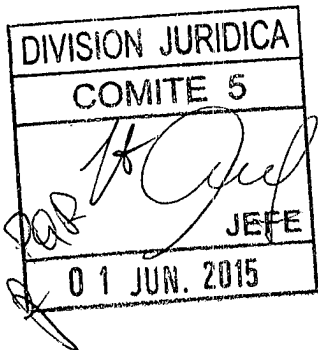 DIVISION JURIDICA
COMITE 5
JEFE
0 1 JUN. 2015